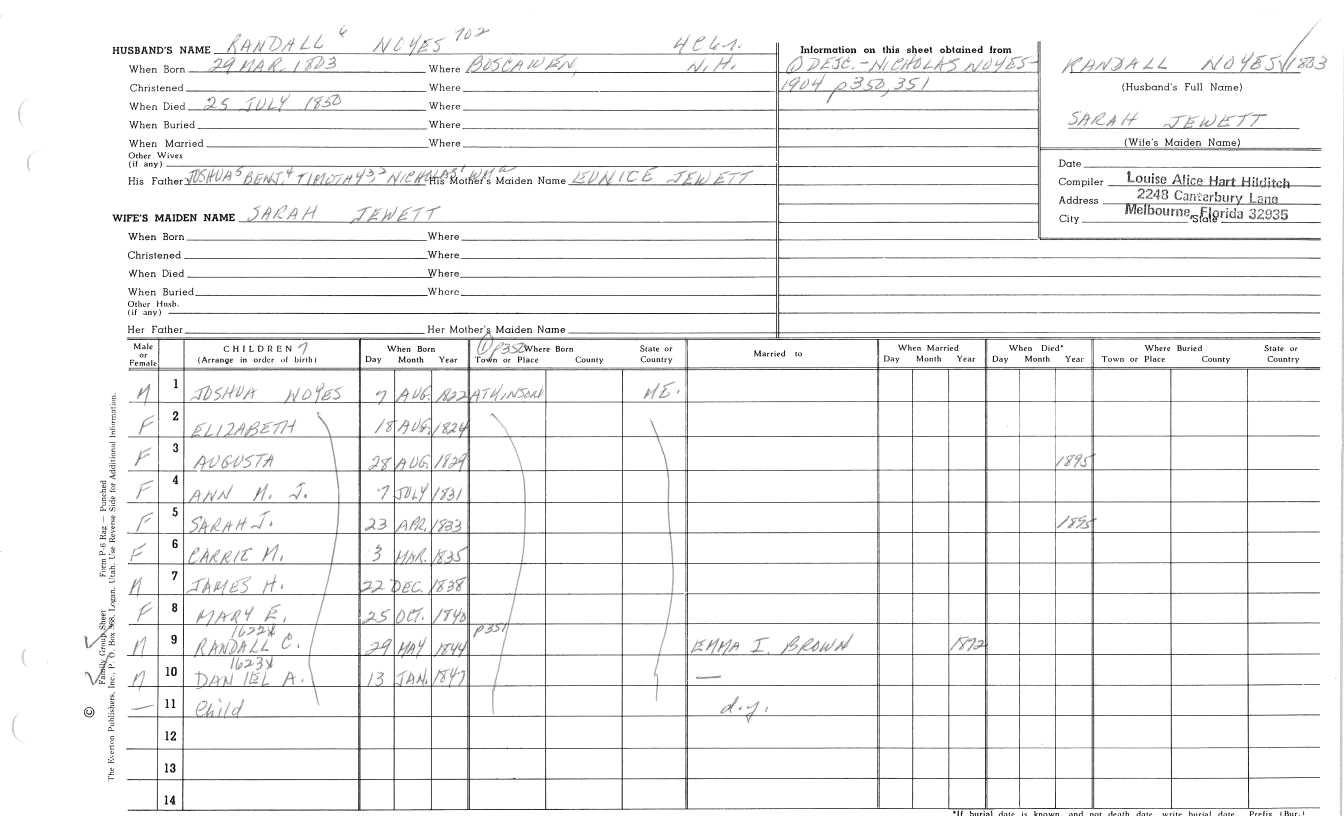 HUSBAND'S NAME RANDALL 6 NOYES 702 4 Ch.
When Born 29 MAR. 1803 Where BOSCAWEN, N.H.
Christened Where
When Died 25 JULY 1850 Where
When Buried Where
When Married Where
Other Wives
(if any)
His Father JOSHUA 5 BENJ, 4 TIMOTHY 3, 2 NICHOLAS 1 WM a His Mother's Maiden Name EUNICE JEWETT
WIFE'S MAIDEN NAME SARAH JEWETT
When Born Where
Christened Where
When Died Where
When Buried Where
Other Husb.
(if any)
Her Father Her Mother's Maiden Name
Information on this sheet obtained from
① DESC. - NICHOLAS NOYES -
1904 p350, 351
RANDALL NOYES 1803
(Husband's Full Name)
SARAH JEWETT
(Wife's Maiden Name)
Date
Compiler Louise Alice Hart Hilditch
Address 2248 Cantarbury Lane
City Melbourne, Florida 32935 State
Male or Female CHILDREN (Arrange in order of birth) When Born Day Month Year ① p350 Where Born Town or Place County State or Country Married to When Married Day Month Year When Died* Day Month Year Where Buried Town or Place County State or Country
M 1 JOSHUA NOYES 7 AUG. 1822 ATKINSON ME.
F 2 ELIZABETH 18 AUG. 1824
F 3 AUGUSTA 28 AUG. 1829 1895
F 4 ANN M. J. 7 JULY 1831
F 5 SARAH J. 23 APR. 1833 1895
F 6 CARRIE M. 3 MAR. 1835
M 7 JAMES H. 22 DEC. 1838
F 8 MARY E. 25 OCT. 1840
1622x p351
M 9 RANDALL C. 29 MAY 1844 EMMA I. BROWN 1872
1623x
M 10 DANIEL A. 13 JAN. 1847 —
— 11 Child d.y.
12
13
14
*If burial date is known, and not death date, write burial date. Prefix (Bur.)
© Family Group Sheet Form P-6 Rag — Punched
The Everton Publishers, Inc., P. O. Box 368, Logan, Utah. Use Reverse Side for Additional Information.